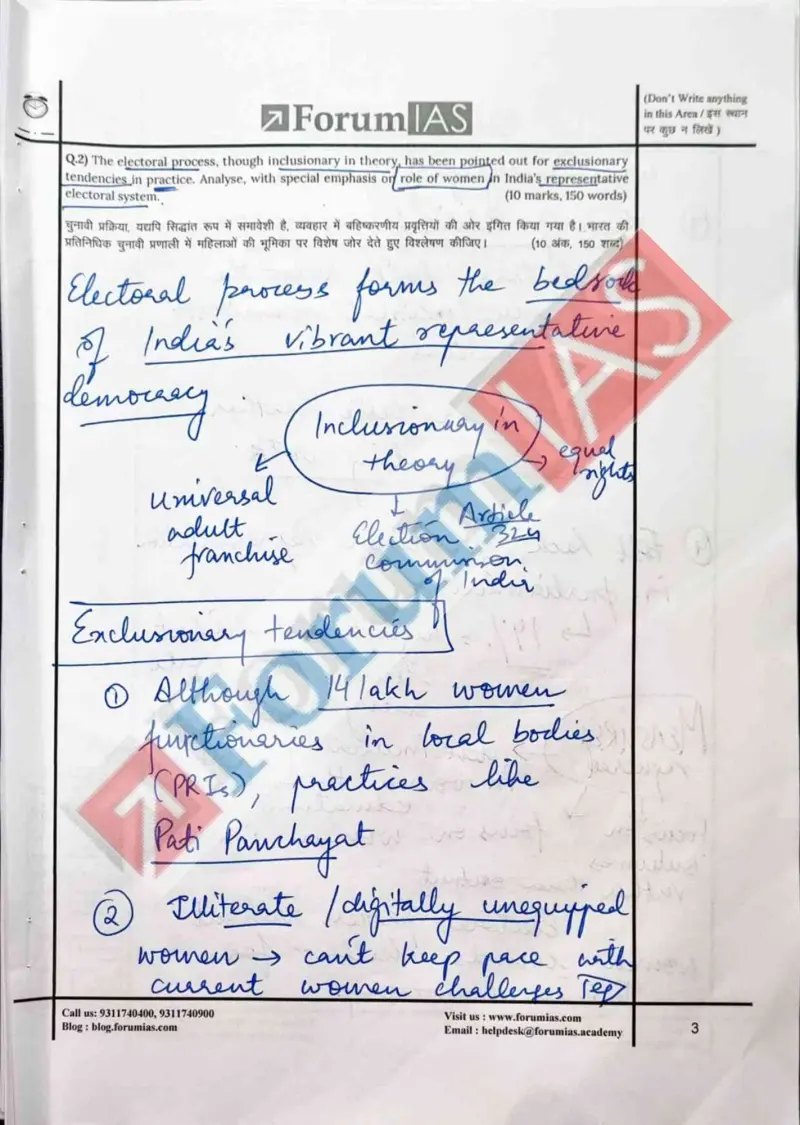 ForumIAS
(Don't Write anything
in this Area / इस स्थान
पर कुछ न लिखें )
Q.2) The electoral process, though inclusionary in theory, has been pointed out for exclusionary
tendencies in practice. Analyse, with special emphasis on role of women in India's representative
electoral system.
(10 marks, 150 words)
चुनावी प्रक्रिया, यद्यपि सिद्धांत रूप में समावेशी है, व्यवहार में बहिष्करणीय प्रवृत्तियों की ओर इंगित किया गया है। भारत की
प्रतिनिधिक चुनावी प्रणाली में महिलाओं की भूमिका पर विशेष जोर देते हुए विश्लेषण कीजिए।
(10 अंक, 150 शब्द)
Electoral process forms the bedrock
of India's vibrant representative
democracy.
Inclusionary in
theory
equal
rights
Universal
adult
franchise
Election
Article
324
commission
of India
Exclusionary tendencies
① Although 14 lakh women
functionaries in local bodies
(PRIs), practices like
Pati Panchayat
② Illiterate / digitally unequipped
women → can't keep pace with
current women challenges
ForumIAS
Call us: 9311740400, 9311740900
Blog : blog.forumias.com
Visit us : www.forumias.com
Email : helpdesk@forumias.academy
3